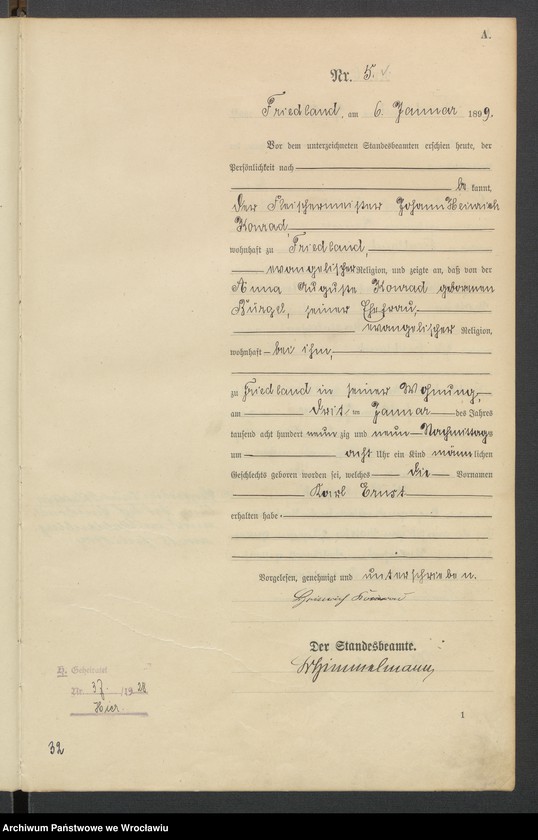 A.
Nr. 5.
Friedland, am 6. Januar 1899.
Vor dem unterzeichneten Standesbeamten erschien heute, der
Persönlichkeit nach
bekannt,
der Fleischermeister Johann Heinrich
Konrad,
wohnhaft zu Friedland,
evangelischer Religion, und zeigte an, daß von der
Anna Auguste Konrad geborenen
Bürgel, seiner Ehefrau,
evangelischer Religion,
wohnhaft bei ihm,
zu Friedland in seiner Wohnung,
am dritten Januar des Jahres
tausend acht hundert neunzig und neun Nachmittags
um acht Uhr ein Kind männlichen
Geschlechts geboren worden sei, welches die Vornamen
Karl Ernst
erhalten habe.
Vorgelesen, genehmigt und unterschrieben.
Heinrich Konrad
Der Standesbeamte.
Himmelmann
Nr. 37. /1928
Hier.
1
32
Archiwum Państwowe we Wrocławiu